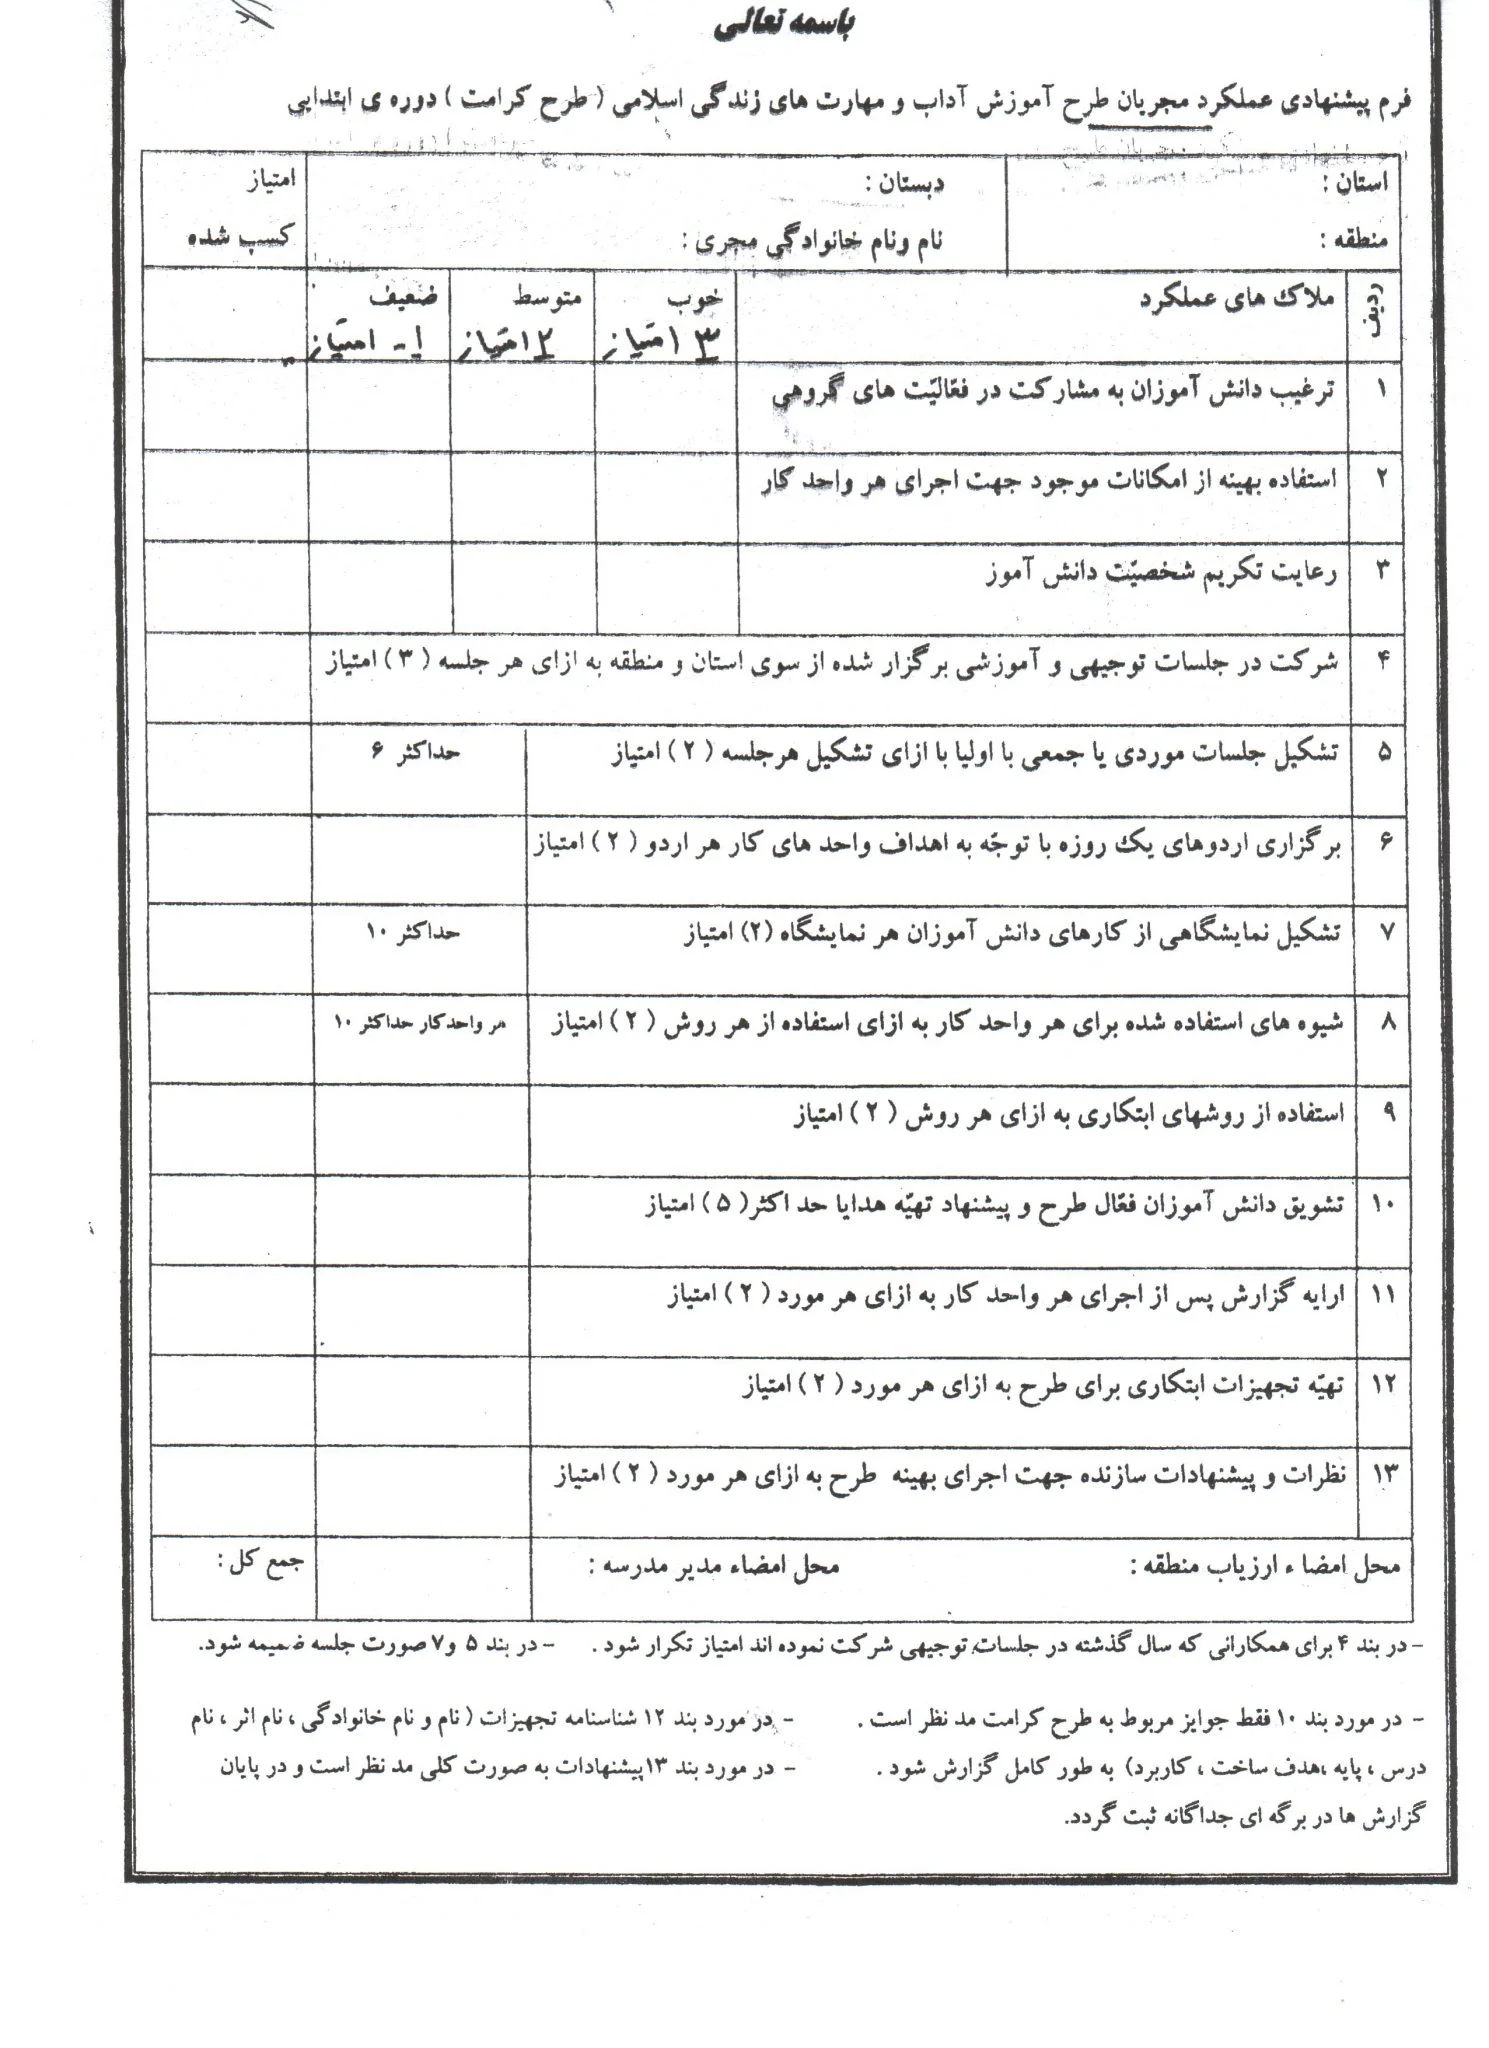 باسمه تعالی
فرم پیشنهادی عملکرد مجریان طرح آموزش آداب و مهارت های زندگی اسلامی ( طرح کرامت ) دوره ی ابتدایی
استان : دبستان : امتیاز
منطقه : نام ونام خانوادگی مجری : کسب شده
ردیف ملاک های عملکرد خوب متوسط ضعیف
۳ امتیاز ۲ امتیاز ۱- امتیاز
۱ ترغیب دانش آموزان به مشارکت در فعّالیّت های گروهی
۲ استفاده بهینه از امکانات موجود جهت اجرای هر واحد کار
۳ رعایت تکریم شخصیّت دانش آموز
۴ شرکت در جلسات توجیهی و آموزشی برگزار شده از سوی استان و منطقه به ازای هر جلسه ( ۳ ) امتیاز
۵ تشکیل جلسات موردی یا جمعی با اولیا با ازای تشکیل هرجلسه ( ۲ ) امتیاز حداکثر ۶
۶ برگزاری اردوهای یک روزه با توجّه به اهداف واحد های کار هر اردو ( ۲ ) امتیاز
۷ تشکیل نمایشگاهی از کارهای دانش آموزان هر نمایشگاه (۲) امتیاز حداکثر ۱۰
۸ شیوه های استفاده شده برای هر واحد کار به ازای استفاده از هر روش ( ۲ ) امتیاز هر واحدکار حداکثر ۱۰
۹ استفاده از روشهای ابتکاری به ازای هر روش ( ۲ ) امتیاز
۱۰ تشویق دانش آموزان فعّال طرح و پیشنهاد تهیّه هدایا حد اکثر( ۵ ) امتیاز
۱۱ ارایه گزارش پس از اجرای هر واحد کار به ازای هر مورد ( ۲ ) امتیاز
۱۲ تهیّه تجهیزات ابتکاری برای طرح به ازای هر مورد ( ۲ ) امتیاز
۱۳ نظرات و پیشنهادات سازنده جهت اجرای بهینه طرح به ازای هر مورد ( ۲ ) امتیاز
محل امضا ء ارزیاب منطقه : محل امضاء مدیر مدرسه : جمع کل :
- در بند ۴ برای همکارانی که سال گذشته در جلسات توجیهی شرکت نموده اند امتیاز تکرار شود . - در بند ۵ و۷ صورت جلسه ضمیمه شود.
- در مورد بند ۱۰ فقط جوایز مربوط به طرح کرامت مد نظر است . - در مورد بند ۱۲ شناسنامه تجهیزات ( نام و نام خانوادگی ، نام اثر ، نام
درس ، پایه ،هدف ساخت ، کاربرد) به طور کامل گزارش شود . - در مورد بند ۱۳پیشنهادات به صورت کلی مد نظر است و در پایان
گزارش ها در برگه ای جداگانه ثبت گردد.